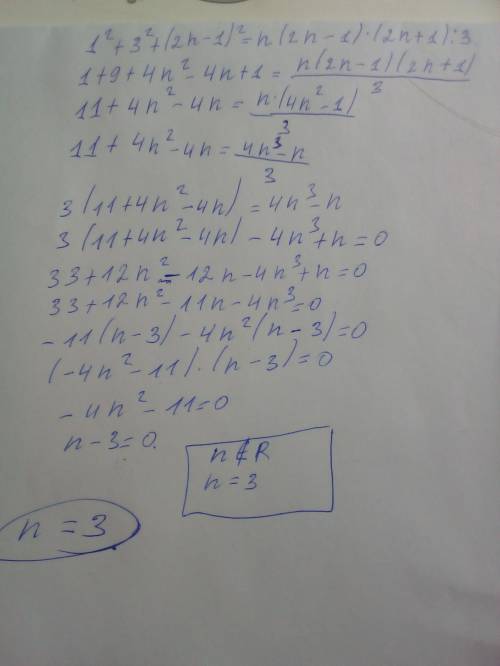 1² + 3² + (2n-1)² = n(2n-1)·(2n+1):3
1+9+4n²-4n+1 = n(2n-1)(2n+1)/3
11+4n²-4n = n·(4n²-1)/3
11+4n²-4n = 4n³-n/3
3(11+4n²-4n) = 4n³-n
3(11+4n²-4n)-4n³+n=0
33+12n²-12n-4n³+n=0
33+12n²-11n-4n³=0
-11(n-3)-4n²(n-3)=0
(-4n²-11)·(n-3)=0
-4n²-11=0
n-3=0.
n∉R
n=3
n=3